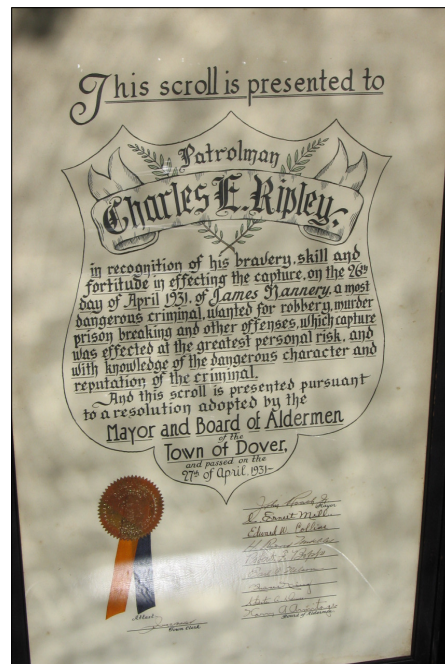 This scroll is presented to
Patrolman
Charles E. Ripley,
in recognition of his bravery, skill and
fortitude in effecting the capture, on the 26th
day of April 1931, of James Nannery, a most
dangerous criminal, wanted for robbery, murder
prison breaking and other offenses, which capture
was effected at the greatest personal risk, and
with knowledge of the dangerous character and
reputation of the criminal.
And this scroll is presented pursuant
to a resolution adopted by the
Mayor and Board of Aldermen
of the
Town of Dover,
and passed on the
27th of April, 1931-
John
Mayor
Ernest Mall
Edward W. Collins
Attest
Town Clerk
Board of Aldermen